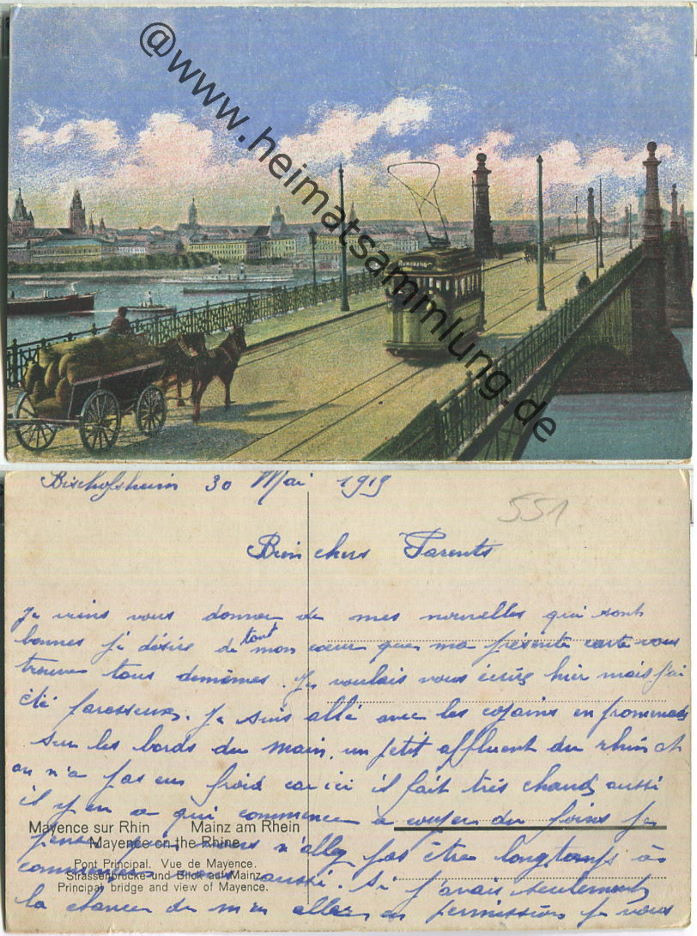 @www.heimatsammlung.de
Bischofsheim 30 Mai 1919
551
Bien chers Parents
Je viens vous donner de mes nouvelles qui sont
bonnes je désire de tout mon cœur que ma présente carte vous
trouve tous demêmes. Je voulais vous écrire hier mais j'ai
été paresseux. Je suis allé avec les copains en promenade
sur les bords du main, un petit affluent du rhin et
on n'a pas eu froid car ici il fait très chaud, aussi
il y en a qui commence à couper du foins je
pense que vous n'allez pas être longtemps à
commencer vous aussi. Si j'avais seulement
la chance de m'en aller en permission je vous
Mayence sur Rhin Mainz am Rhein
Mayence on the Rhine
Pont Principal. Vue de Mayence.
Strassenbrücke und Blick auf Mainz.
Principal bridge and view of Mayence.